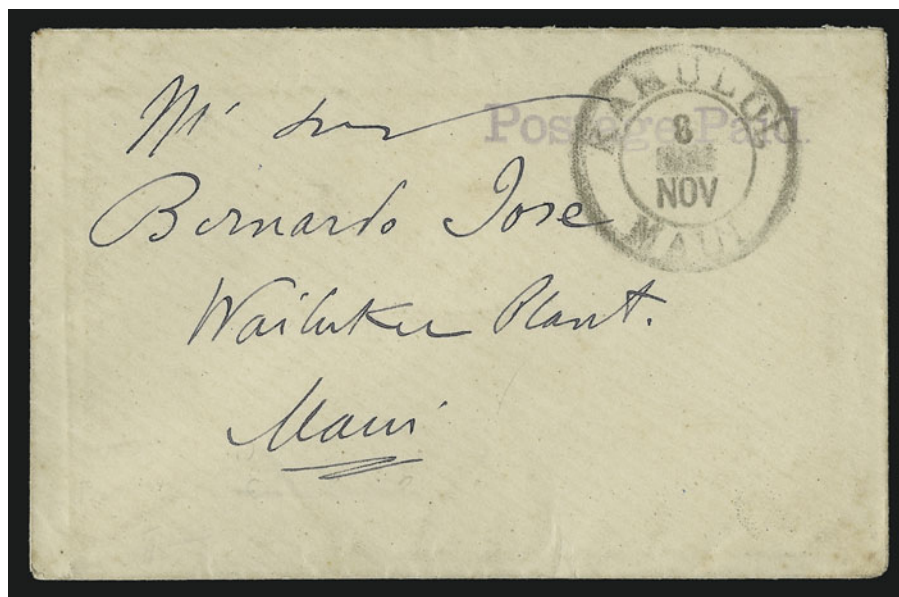 Mr
Bernardo Jose
Wailukee Plant.
Maui
Postage Paid.
KAHULUI
8
NOV
MAUI